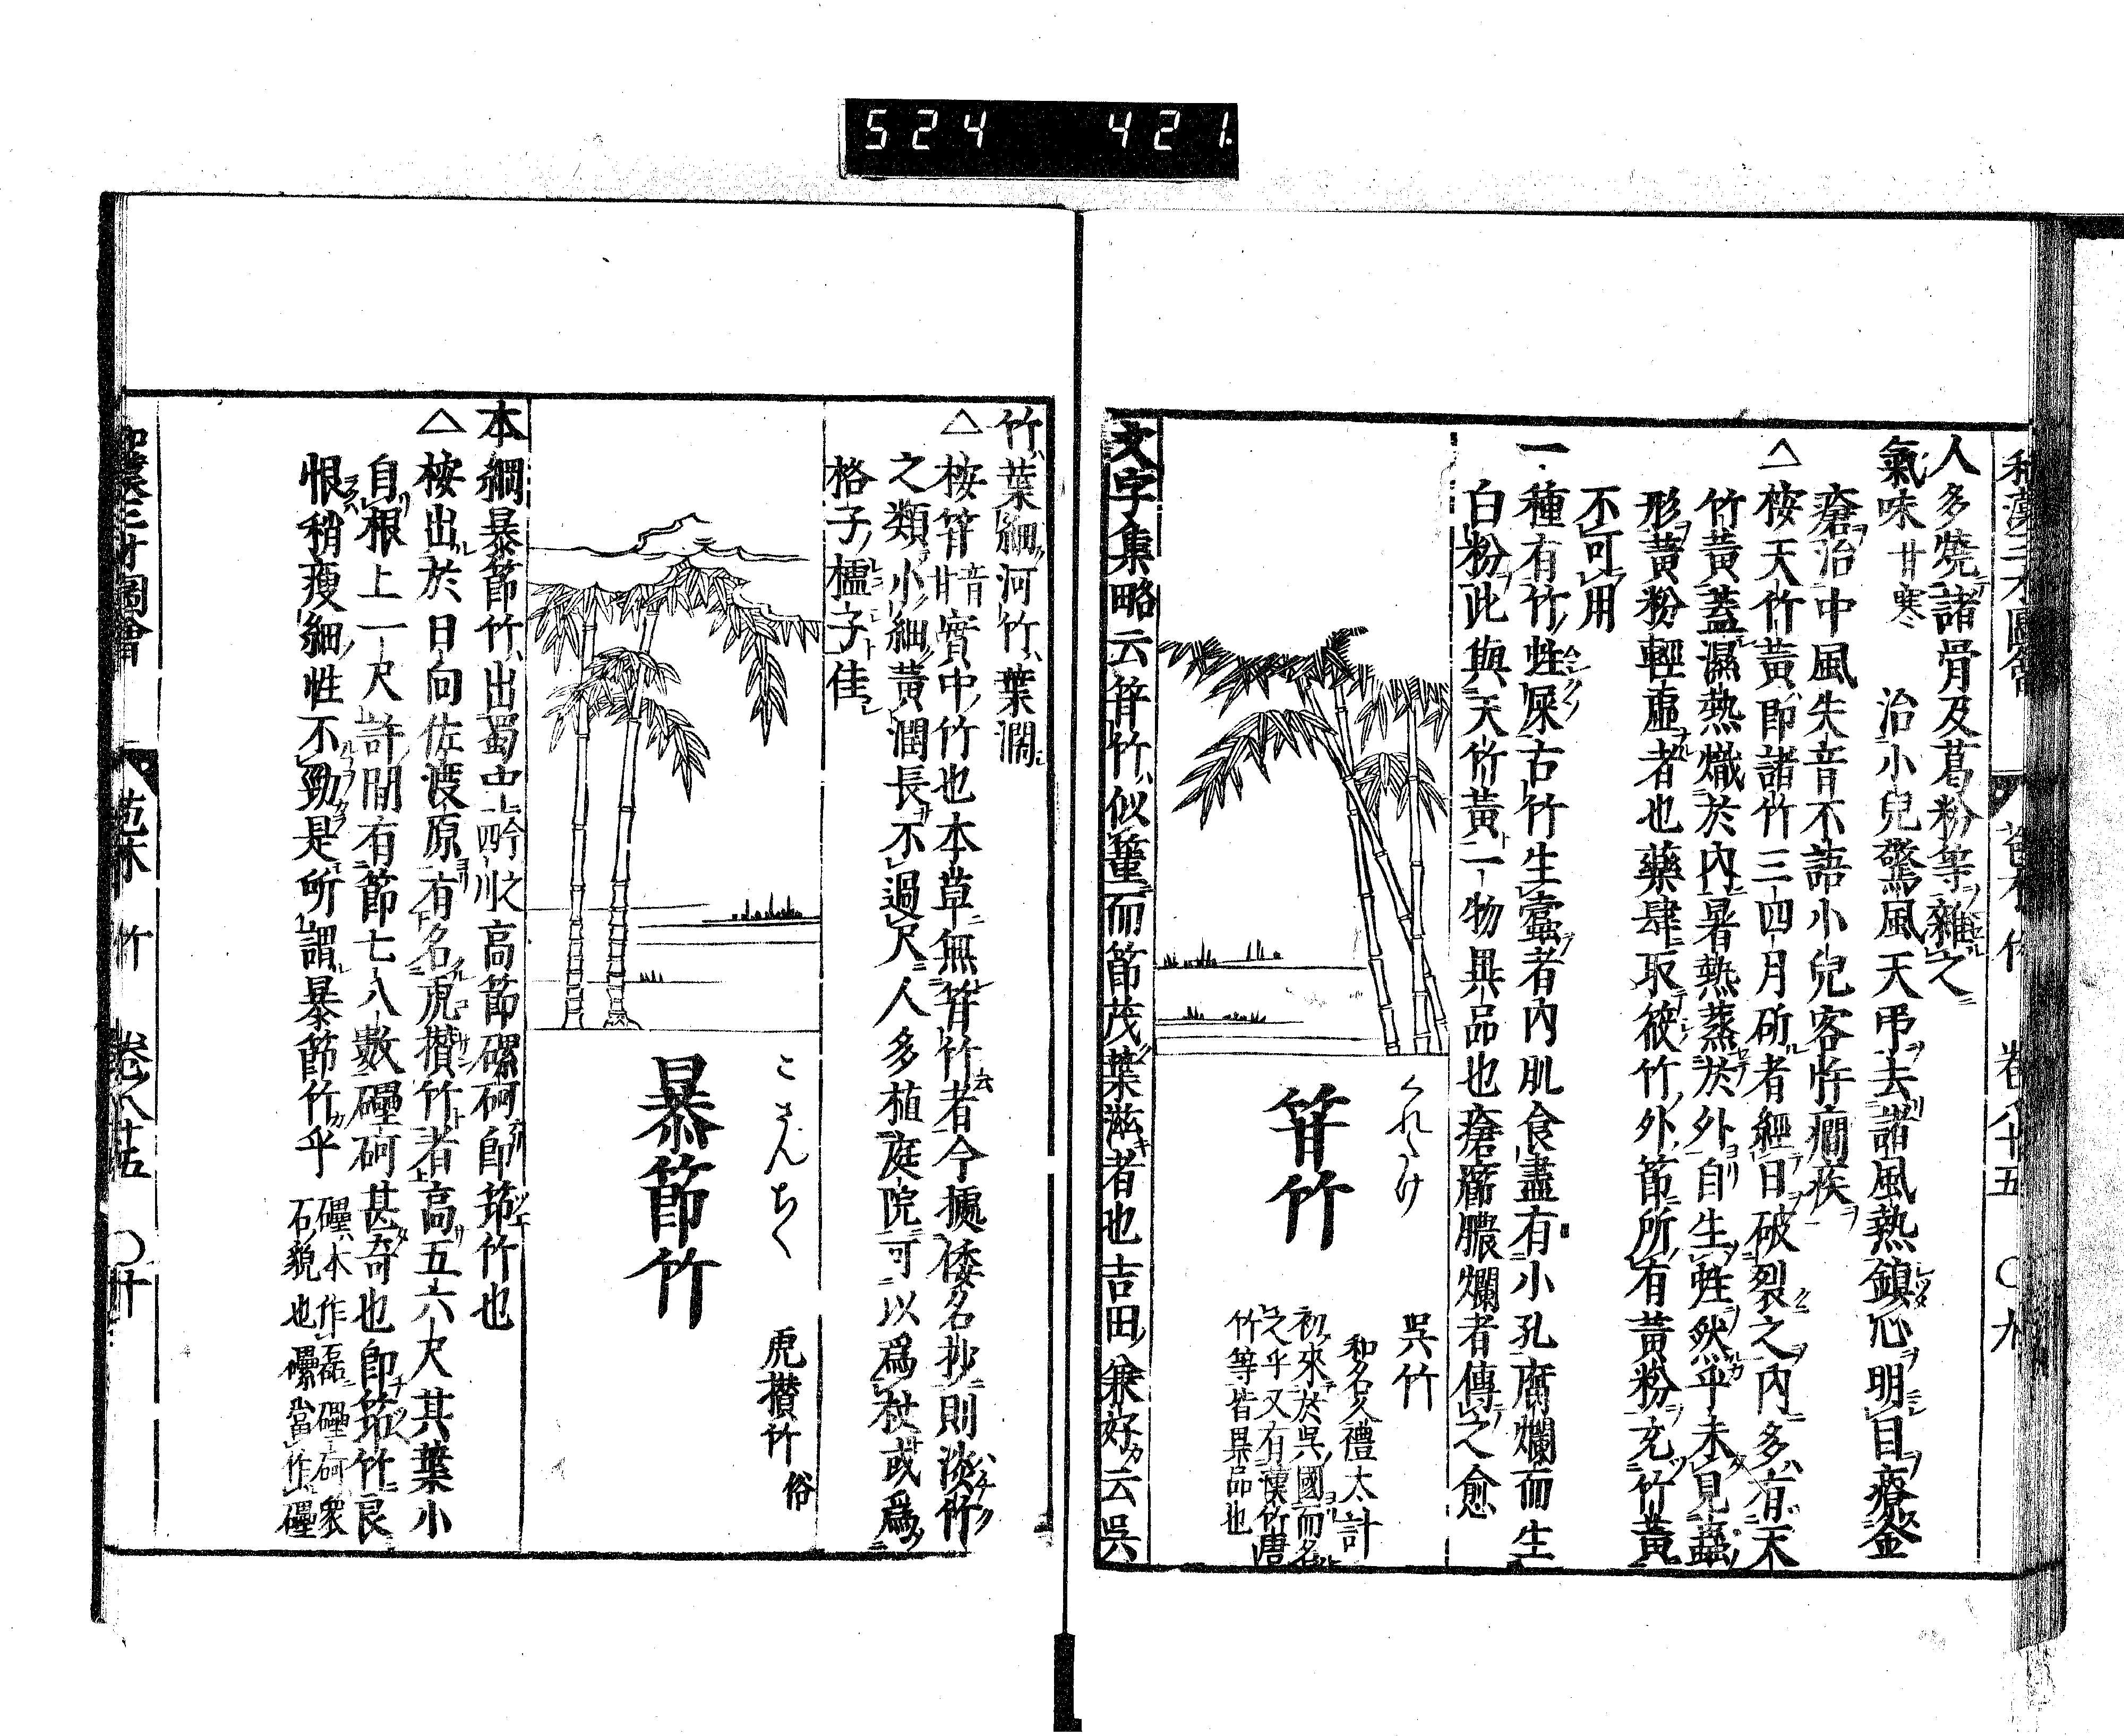 524 421
人多燒諸骨及葛粉等雜之
氣味 甘寒 治小兒驚風天吊去諸風熱鎮心明目療金
瘡治中風失音不語小兒客忤癇疾
△桉天竹黃卽諸竹三四月斫者經日破裂之內多有天
竹黃蓋濕熱熾於內暑熱蒸於外自生蛀然乎未見蟲
形黃粉輕虛者也藥肆取筱竹外節所有黃粉充竹黃
不可用
一種有竹蛀屎古竹生蠹者內肌食盡有小孔腐爛而生
白粉此與天竹黃一物異品也瘡癤膿爛者傳之愈
くれたけ
䇞竹
吳竹
和名久禮太計
初來於吳國而名
之乎又有漢竹唐
竹等皆異品也
文字集略云䇞竹似篁而節茂葉滋者也吉田兼好云吳
竹葉細河竹葉濶
△桉䇞音甘實中竹也本草無䇞竹者今據倭名抄則淡竹
之類小細黃潤長不過尺人多植庭院可以爲杖或爲
格子櫺子佳
こさんちく
暴節竹
虎攅竹 俗
本綱暴節竹出蜀中四吟州高節磥砢卽筇竹也
△桉出於日向佐渡原有名虎攅竹者高五六尺其葉小
自根上一尺許間有節七八數礧砢甚奇也卽筇竹艮
恨稍瘦細性不勁是所謂暴節竹乎
礧本作磊礧砢衆
石貌也磥當作礧
和漢三才圖會 苞木 竹 卷之八十五 〇十